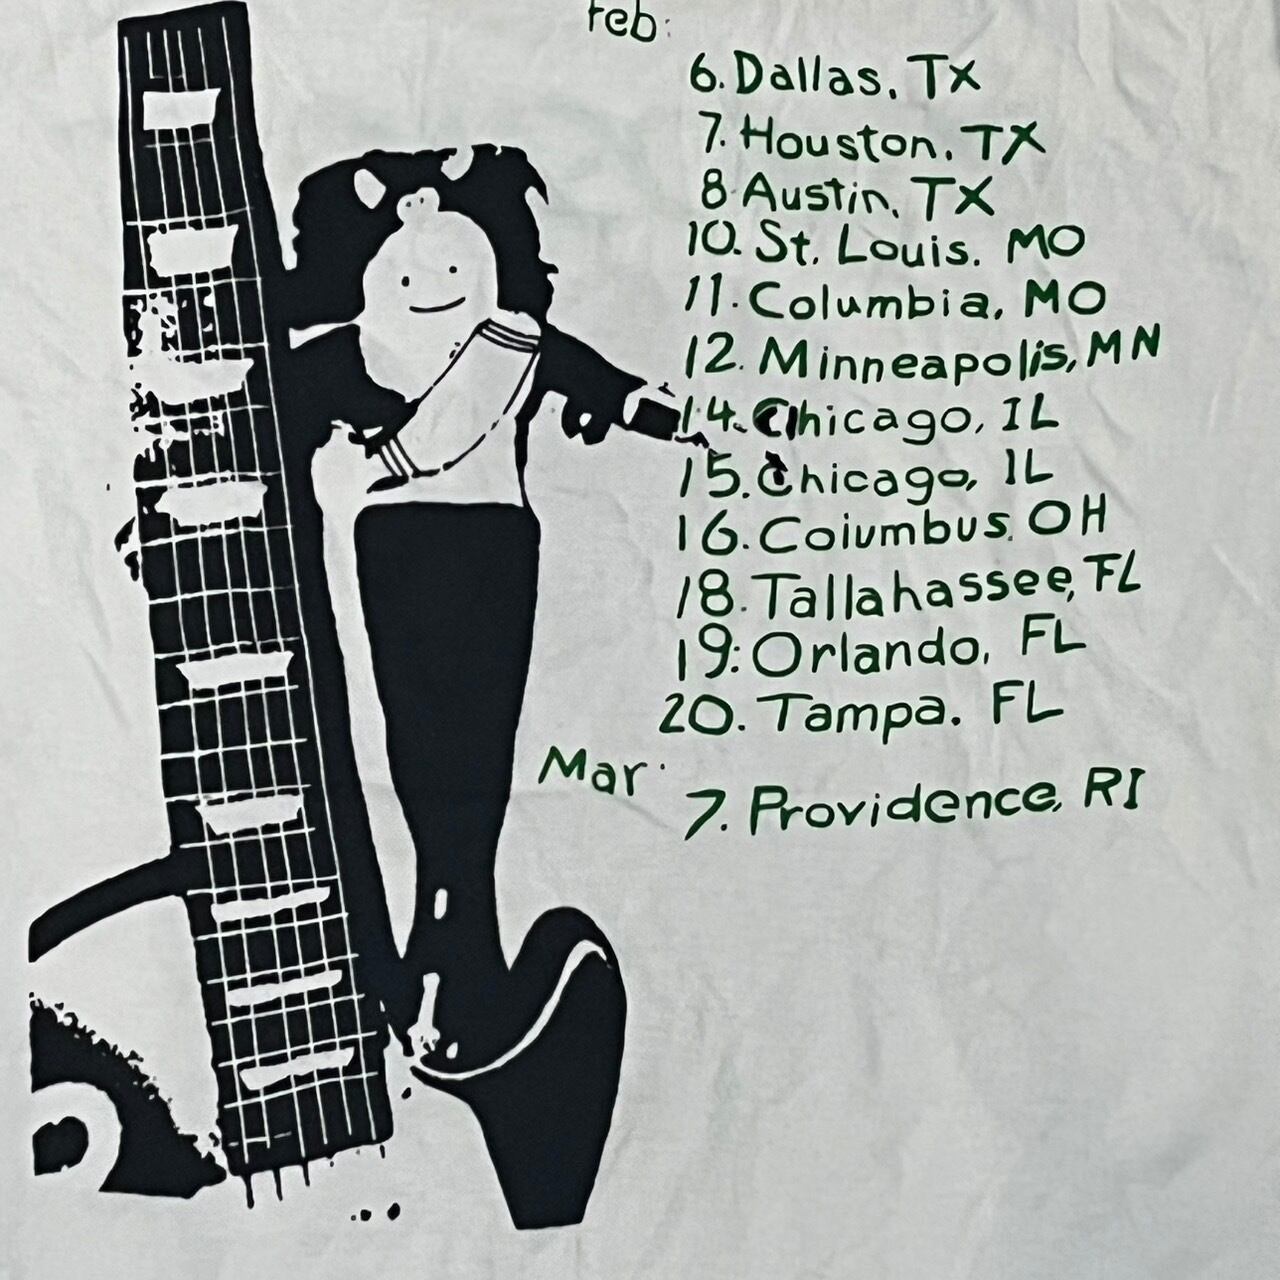 Feb:
6. Dallas, TX
7. Houston, TX
8 Austin, TX
10. St. Louis. MO
11. Columbia, MO
12. Minneapolis, MN
14. Chicago, IL
15. Chicago, IL
16. Coiumbus, OH
18. Tallahassee, FL
19: Orlando, FL
20. Tampa. FL
Mar.
7. Providence, RI